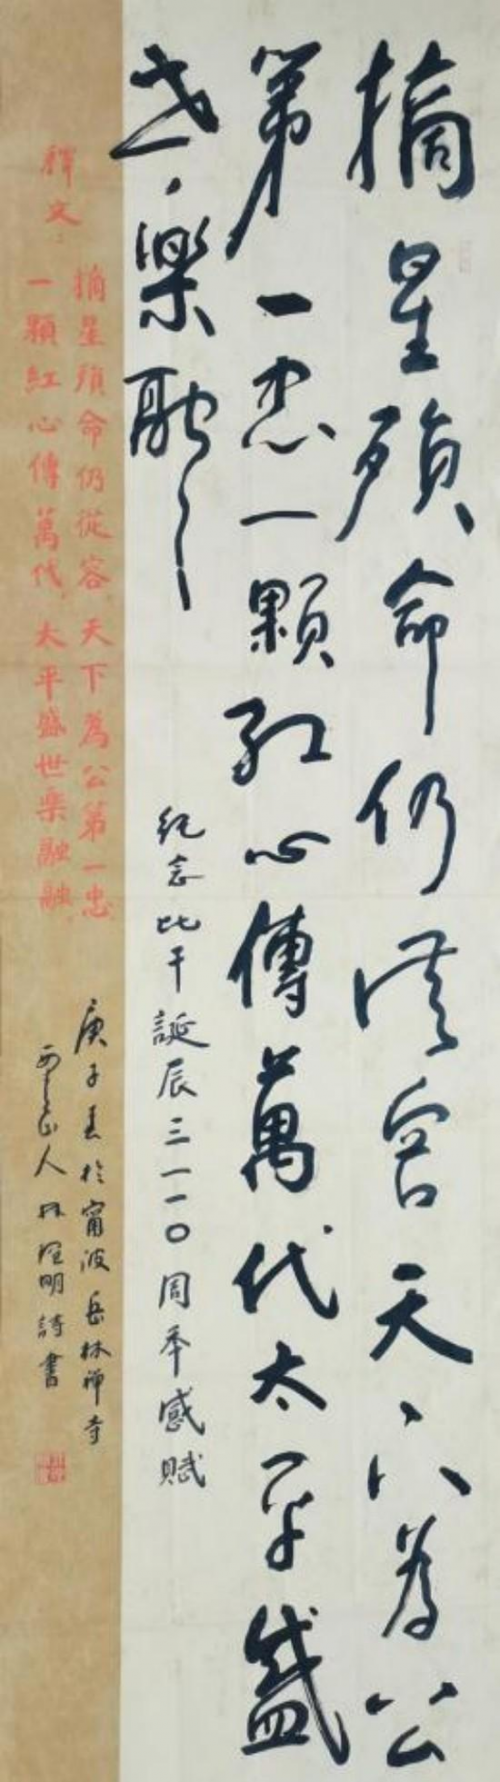 摘星殞命仍從容天下為公
第一忠一顆紅心傳萬代太平盛
世樂融融
紀念比干誕辰三一一〇周年感賦
釋文：
摘星殞命仍從容天下為公第一忠
一顆紅心傳萬代太平盛世樂融融
庚子春於甯波岳林禪寺
人林 明詩書